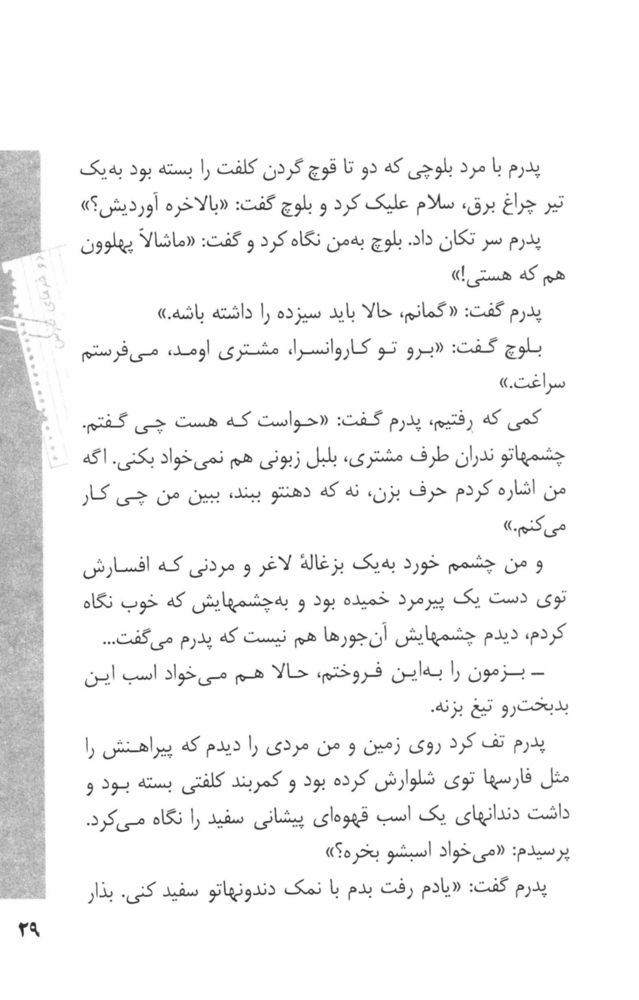 پدرم با مرد بلوچی که دو تا قوچ گردن کلفت را بسته بود به‌یک
تیر چراغ برق، سلام علیک کرد و بلوچ گفت: «بالاخره آوردیش؟»
پدرم سر تکان داد. بلوچ به‌من نگاه کرد و گفت: «ماشالاً پهلوون
هم که هستی!»
پدرم گفت: «گمانم، حالا باید سیزده را داشته باشه.»
بلوچ گفت: «برو تو کاروانسرا، مشتری اومد، می‌فرستم
سراغت.»
کمی که رفتیم، پدرم گفت: «حواست که هست چی گفتم.
چشمهاتو ندران طرف مشتری، بلبل زبونی هم نمی‌خواد بکنی. اگه
من اشاره کردم حرف بزن، نه که دهنتو ببند، ببین من چی کار
می‌کنم.»
و من چشمم خورد به‌یک بزغالهٔ لاغر و مردنی که افسارش
توی دست یک پیرمرد خمیده بود و به‌چشمهایش که خوب نگاه
کردم، دیدم چشمهایش آن‌جورها هم نیست که پدرم می‌گفت...
ـ بزمون را به‌این فروختم، حالا هم می‌خواد اسب این
بدبخت‌رو تیغ بزنه.
پدرم تف کرد روی زمین و من مردی را دیدم که پیراهنش را
مثل فارسها توی شلوارش کرده بود و کمربند کلفتی بسته بود و
داشت دندانهای یک اسب قهوه‌ای پیشانی سفید را نگاه می‌کرد.
پرسیدم: «می‌خواد اسبشو بخره؟»
پدرم گفت: «یادم رفت بدم با نمک دندونهاتو سفید کنی. بذار
۲۹
دو خرمای